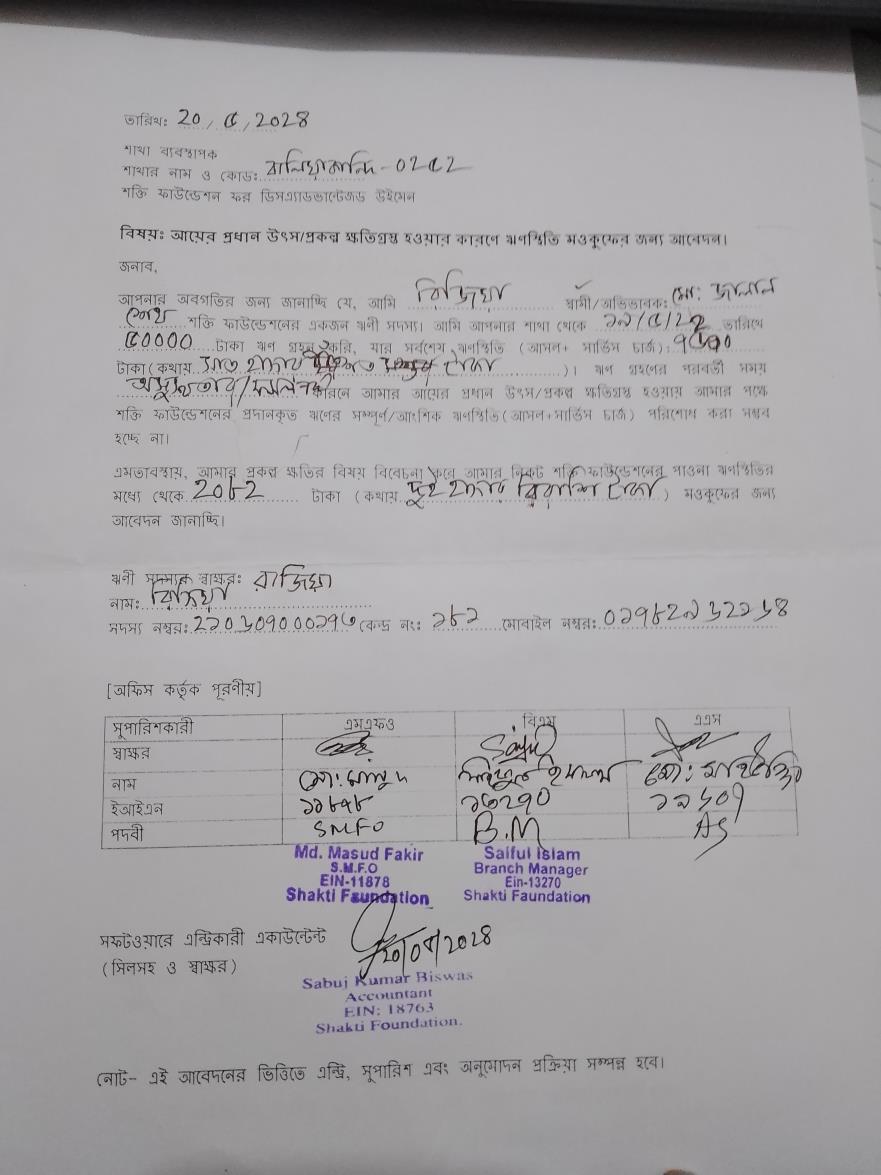 তারিখ: 20/৫/2028
শাখা ব্যবস্থাপক
শাখার নাম ও কোড: বালিয়াকান্দি-0252
শক্তি ফাউন্ডেশন ফর ডিসএ্যাডভান্টেজড উইমেন
বিষয়: আয়ের প্রধান উৎস/প্রকল্প ক্ষতিগ্রস্ত হওয়ার কারণে ঋণস্থিতি মওকুফের জন্য আবেদন।
জনাব,
আপনার অবগতির জন্য জানাচ্ছি যে, আমি স্বামী/অভিভাবক: মো: জালাল
শেখ শক্তি ফাউন্ডেশনের একজন ঋণী সদস্য। আমি আপনার শাখা থেকে তারিখে
৫0000 টাকা ঋণ গ্রহন করি, যার সর্বশেষ ঋণস্থিতি (আসল+ সার্ভিস চার্জ):
টাকা(কথায় সাত হাজার টাকা)। ঋণ গ্রহণের পরবর্তী সময়
কারনে আমার আয়ের প্রধান উৎস/প্রকল্প ক্ষতিগ্রস্ত হওয়ায় আমার পক্ষে
শক্তি ফাউন্ডেশনের প্রদানকৃত ঋণের সম্পূর্ণ/আংশিক ঋণস্থিতি(আসল+সার্ভিস চার্জ) পরিশোধ করা সম্ভব
হচ্ছে না।
এমতাবস্থায়, আমার প্রকল্প ক্ষতির বিষয় বিবেচনা করে আমার নিকট শক্তি ফাউন্ডেশনের পাওনা ঋণস্থিতির
মধ্যে থেকে 20৮2 টাকা (কথায় দুই হাজার বিরাশি টাকা) মওকুফের জন্য
আবেদন জানাচ্ছি।
ঋণী সদস্যের স্বাক্ষর: রাজিয়া
নাম:
সদস্য নম্বর: কেন্দ্র নং: ১৮২ মোবাইল নম্বর:
[অফিস কর্তৃক পূরণীয়]
সুপারিশকারী এমএফও বিএম এএস
স্বাক্ষর
নাম মো: মাসুদ সাইফুল ইসলাম
ইআইএন ১১৮৭৮ ১৩২৭০
পদবী SMFO B.M AS
Md. Masud Fakir
S.M.F.O
EIN-11878
Shakti Faundation
Saiful Islam
Branch Manager
Ein-13270
Shakti Faundation
সফটওয়ারে এন্ট্রিকারী একাউন্টেন্ট
20/05/2028
(সিলসহ ও স্বাক্ষর)
Sabuj Kumar Biswas
Accountant
EIN: 18763
Shakti Foundation.
নোট- এই আবেদনের ভিত্তিতে এন্ট্রি, সুপারিশ এবং অনুমোদন প্রক্রিয়া সম্পন্ন হবে।